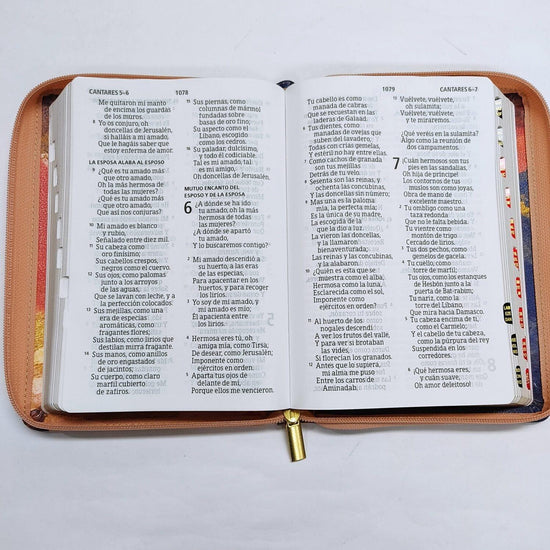 CANTARES 5–6
1078
Me quitaron mi manto
de encima los guardas
de los muros.
8 Yo os conjuro, oh
doncellas de Jerusalén,
si halláis a mi amado,
Que le hagáis saber que
estoy enferma de amor.
LA ESPOSA ALABA AL ESPOSO
9 ¿Qué es tu amado más
que otro amado,
Oh la más hermosa de
todas las mujeres?
¿Qué es tu amado más
que otro amado,
Que así nos conjuras?
10 Mi amado es blanco
y rubio,
Señalado entre diez mil.
11 Su cabeza como
oro finísimo;
Sus cabellos crespos,
negros como el cuervo.
12 Sus ojos, como palomas
junto a los arroyos
de las aguas,
Que se lavan con leche, y a
la perfección colocados.
13 Sus mejillas, como una
era de especias
aromáticas, como
fragantes flores;
Sus labios, como lirios que
destilan mirra fragante.
14 Sus manos, como anillos
de oro engastados
de jacintos;
Su cuerpo, como claro
marfil cubierto
de zafiros.
15 Sus piernas, como
columnas de mármol
fundadas sobre
basas de oro fino;
Su aspecto como el
Líbano, escogido
como los cedros.
16 Su paladar, dulcísimo,
y todo él codiciable.
Tal es mi amado, tal
es mi amigo,
Oh doncellas de Jerusalén.
MUTUO ENCANTO DEL
ESPOSO Y DE LA ESPOSA
6 ¿A dónde se ha ido
tu amado, oh la más
hermosa de todas
las mujeres?
¿A dónde se apartó
tu amado,
Y lo buscaremos contigo?
2 Mi amado descendió a
su huerto, a las eras
de las especias,
Para apacentar en los
huertos, y para recoger
los lirios.
3 Yo soy de mi amado, y
mi amado es mío;
Él apacienta entre
los lirios.
4 Hermosa eres tú, oh
amiga mía, como Tirsa;
De desear, como Jerusalén;
Imponente como
ejércitos en orden.
5 Aparta tus ojos de
delante de mí,
Porque ellos me vencieron.
1079
CANTARES 6–7
Tu cabello es como
manada de cabras
Que se recuestan en las
laderas de Galaad.
6 Tus dientes, como
manadas de ovejas que
suben del lavadero,
Todas con crías gemelas,
Y estéril no hay entre ellas.
7 Como cachos de granada
son tus mejillas
Detrás de tu velo.
8 Sesenta son las reinas, y
ochenta las concubinas,
Y las doncellas sin número;
9 Mas una es la paloma
mía, la perfecta mía;
Es la única de su madre,
La escogida de la
que la dio a luz.
La vieron las doncellas,
y la llamaron
bienaventurada;
Las reinas y las concubinas,
y la alabaron.
10 ¿Quién es esta que se
muestra como el alba,
Hermosa como la luna,
Esclarecida como el sol,
Imponente como
ejércitos en orden?
11 Al huerto de los
nogales descendí
A ver los frutos del valle,
Y para ver si brotaban
las vides,
Si florecían los granados.
12 Antes que lo supiera,
mi alma me puso
Entre los carros de
Aminadab.
13 Vuélvete, vuélvete,
oh sulamita;
Vuélvete, vuélvete,
y te miraremos.
¿Qué veréis en la sulamita?
Algo como la reunión de
dos campamentos.
7 ¡Cuán hermosos son tus
pies en las sandalias,
Oh hija de príncipe!
Los contornos de tus
muslos son como joyas,
Obra de mano de
excelente maestro.
2 Tu ombligo como una
taza redonda
Que no le falta bebida.
Tu vientre como
montón de trigo
Cercado de lirios.
3 Tus dos pechos, como
gemelos de gacela.
4 Tu cuello, como
torre de marfil;
Tus ojos, como los estanques
de Hesbón junto a la
puerta de Bat-rabim;
Tu nariz, como la
torre del Líbano,
Que mira hacia Damasco.
5 Tu cabeza encima de ti,
como el Carmelo;
Y el cabello de tu cabeza,
como la púrpura del rey
Suspendida en los
corredores.
6 ¡Qué hermosa eres,
y cuán suave,
Oh amor deleitoso!